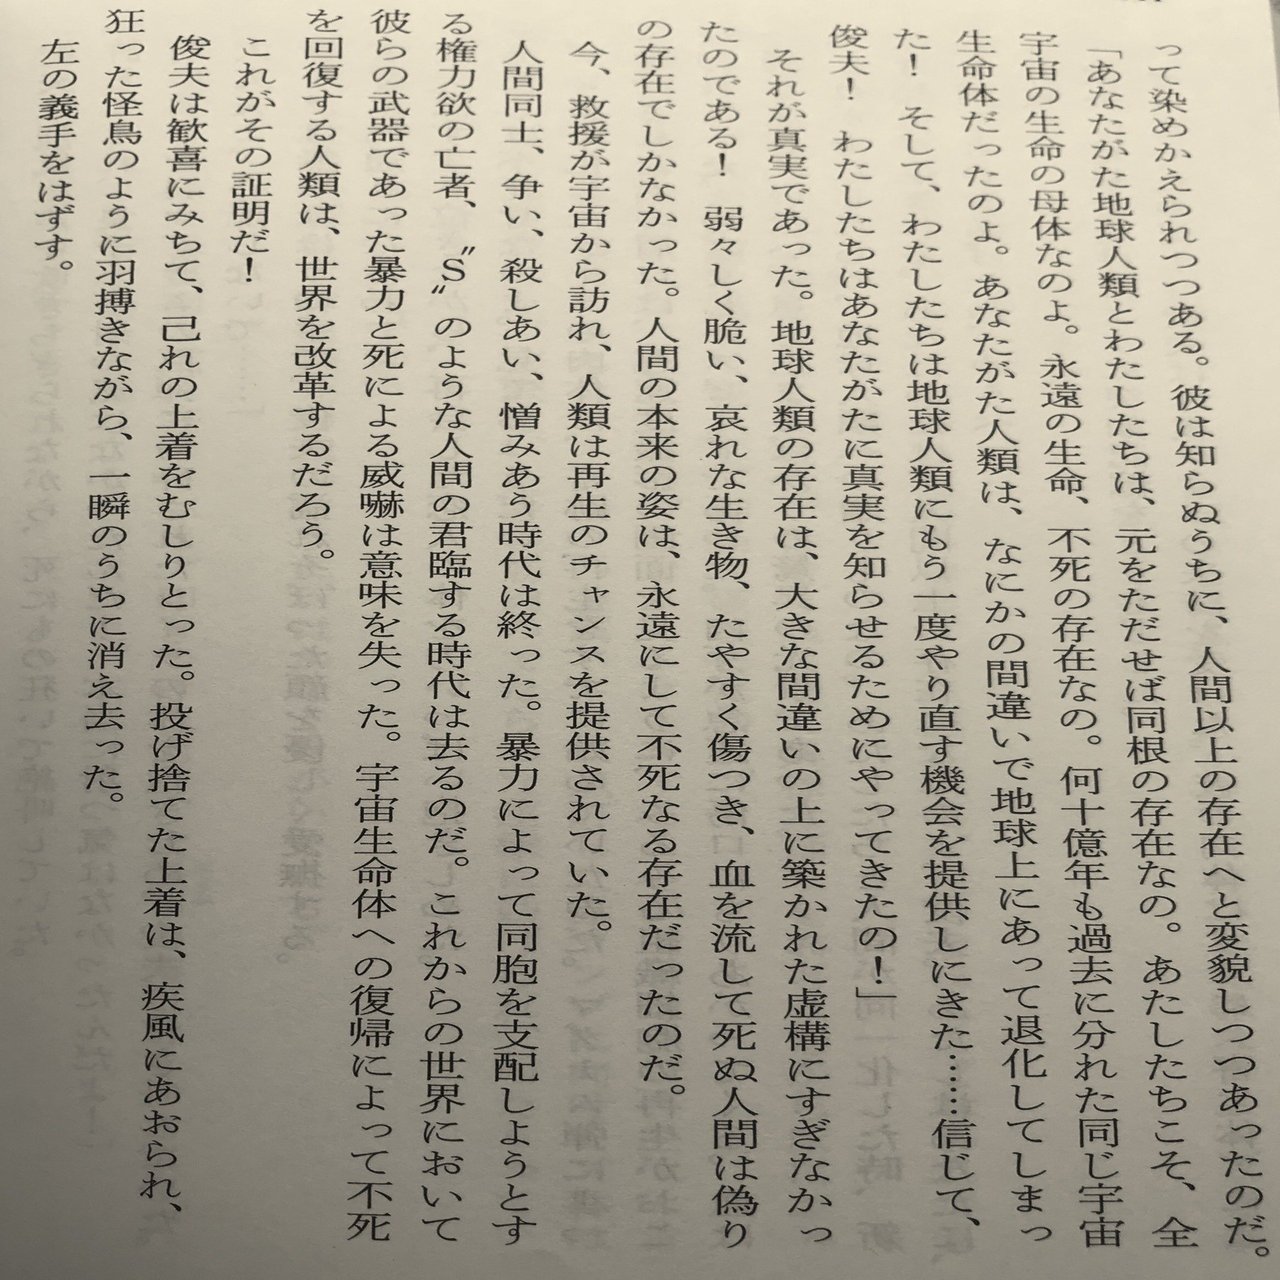 って染めかえられつつある。彼は知らぬうちに、人間以上の存在へと変貌しつつあったのだ。
「あなたがた地球人類とわたしたちは、元をただせば同根の存在なの。あたしたちこそ、全
宇宙の生命の母体なのよ。永遠の生命、不死の存在なの。何十億年も過去に分れた同じ宇宙
生命体だったのよ。あなたがた人類は、なにかの間違いで地球上にあって退化してしまっ
た！　そして、わたしたちは地球人類にもう一度やり直す機会を提供しにきた……信じて、
俊夫！　わたしたちはあなたがたに真実を知らせるためにやってきたの！」
それが真実であった。地球人類の存在は、大きな間違いの上に築かれた虚構にすぎなかっ
たのである！　弱々しく脆い、哀れな生き物、たやすく傷つき、血を流して死ぬ人間は偽り
の存在でしかなかった。人間の本来の姿は、永遠にして不死なる存在だったのだ。
今、救援が宇宙から訪れ、人類は再生のチャンスを提供されていた。
人間同士、争い、殺しあい、憎みあう時代は終った。暴力によって同胞を支配しようとす
る権力欲の亡者、〝S〟のような人間の君臨する時代は去るのだ。これからの世界において
彼らの武器であった暴力と死による威嚇は意味を失った。宇宙生命体への復帰によって不死
を回復する人類は、世界を改革するだろう。
これがその証明だ！
俊夫は歓喜にみちて、己れの上着をむしりとった。投げ捨てた上着は、疾風にあおられ、
狂った怪鳥のように羽搏きながら、一瞬のうちに消え去った。
左の義手をはずす。